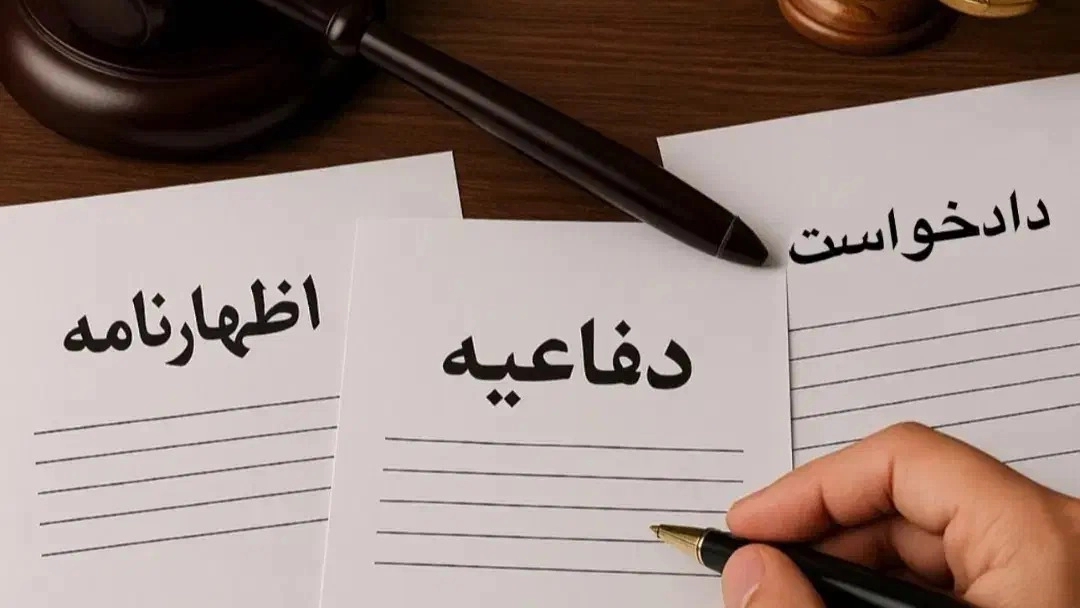 دادخواست
دفاعیه
اظهارنامه